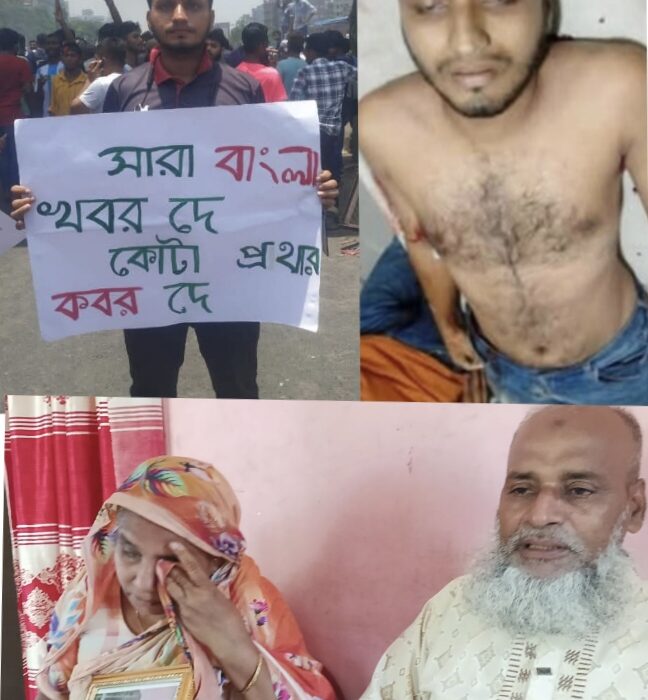 সারা বাংলা
খবর দে
কোটা প্রথার
কবর দে